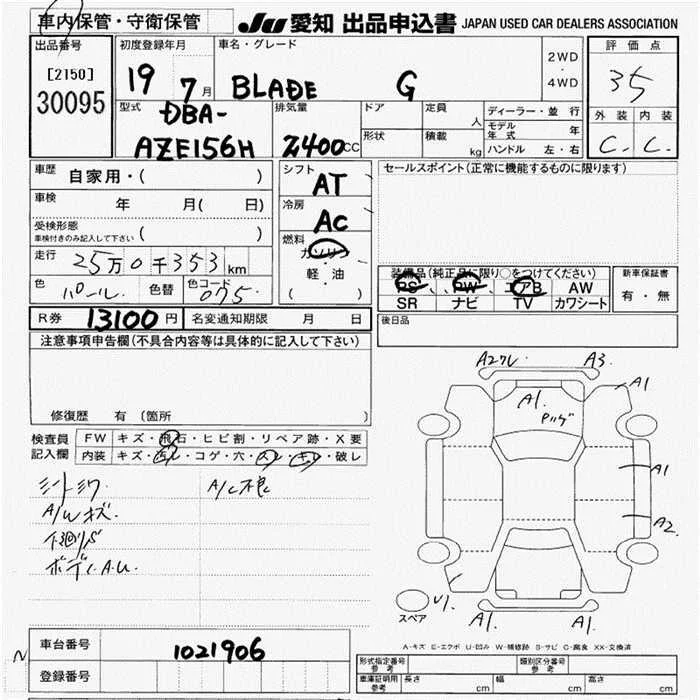 車内保管・守衛保管
JU 愛知 出品申込書 JAPAN USED CAR DEALERS ASSOCIATION
出品番号
[2150]
30095
初度登録年月
19 7月
車名・グレード
BLADE G
2WD
・
4WD
評価点
35
外装 内装
C. C.
型式
DBA-
AZE156H
排気量
2400CC
ドア
形状
定員 人
積載 kg
ディーラー・並行
モデル年式 年
ハンドル 左・右
車歴 自家用・( )
車検 年 月( 日)
受検形態
車検付きのみ記入して下さい ( )
走行 25万0千353km
色 パール. 色替 色コード 075.
シフト
AT
冷房
AC
燃料
ガソリン
・
軽・油
( )
セールスポイント(正常に機能するものに限ります)
装備品(純正品に限り○をつけてください)
PS PW エアB AW
SR ナビ TV カワシート
新車保証書
有・無
R券 13100円 名変通知期限 月 日
後日品
注意事項申告欄(不具合内容等は具体的に記入して下さい)
修復歴 有 (箇所
検査員記入欄
FW キズ・飛石・ヒビ割・リペア跡・X要
内装 キズ・汚レ・コゲ・穴・スレ・キレ・破レ
シートシワ A/C不良
A/Wキズ.
下廻りS
ボディA.U.
A2クレ A3
A1
A1.
Pツゲ
A1
A2
U1.
A1. A1
スペア
A-キズ E-エクボ U-凹み W-補修跡 S-サビ C-腐食 XX-交換済
車台番号 1021906
N
登録番号
形式指定番号 参考
類別区分番号 参考
車庫証明用 参考 長さ cm 幅 cm 高さ cm